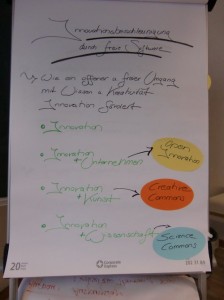 Innovationsbeschleunigung
durch freie Software
Wie ein offener & freier Umgang
mit Wissen & Kreativität
Innovation fördert
Innovation
Innovation
& Unternehmen
Open
Innovation
Innovation
& Kunst
Creative
Commons
Innovation
& Wissenschaft
Science
Commons
20